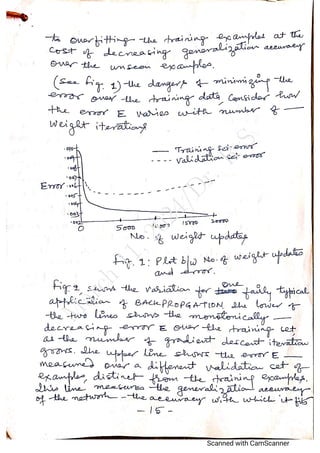 to overfitting the training examples at the
cost of decreasing generalization accuracy
over the unseen examples.
(See fig. 1) the dangers of minimizing the
error over the training data, Consider how
the error E varies with number of —
Weight iterations
— Training set error
---- Validation set error
Error
0
5000
10000
15000
20000
No. of weight updates
Fig. 1: Plot b/w No. of weight updates
and error.
Fig 1 shows the variation for one fairly typical
application of BACKPROPGATION, the lower of
the two lines shows the monotonically —
decreasing error E over the training set
as the number of gradient descent iteration
grows. The upper line shows the error E —
measured over a different validation set of
examples distinct from the training examples.
This line measures the generalization accuracy
of the network - the accuracy with which it fits
- 15 -
Scanned with CamScanner